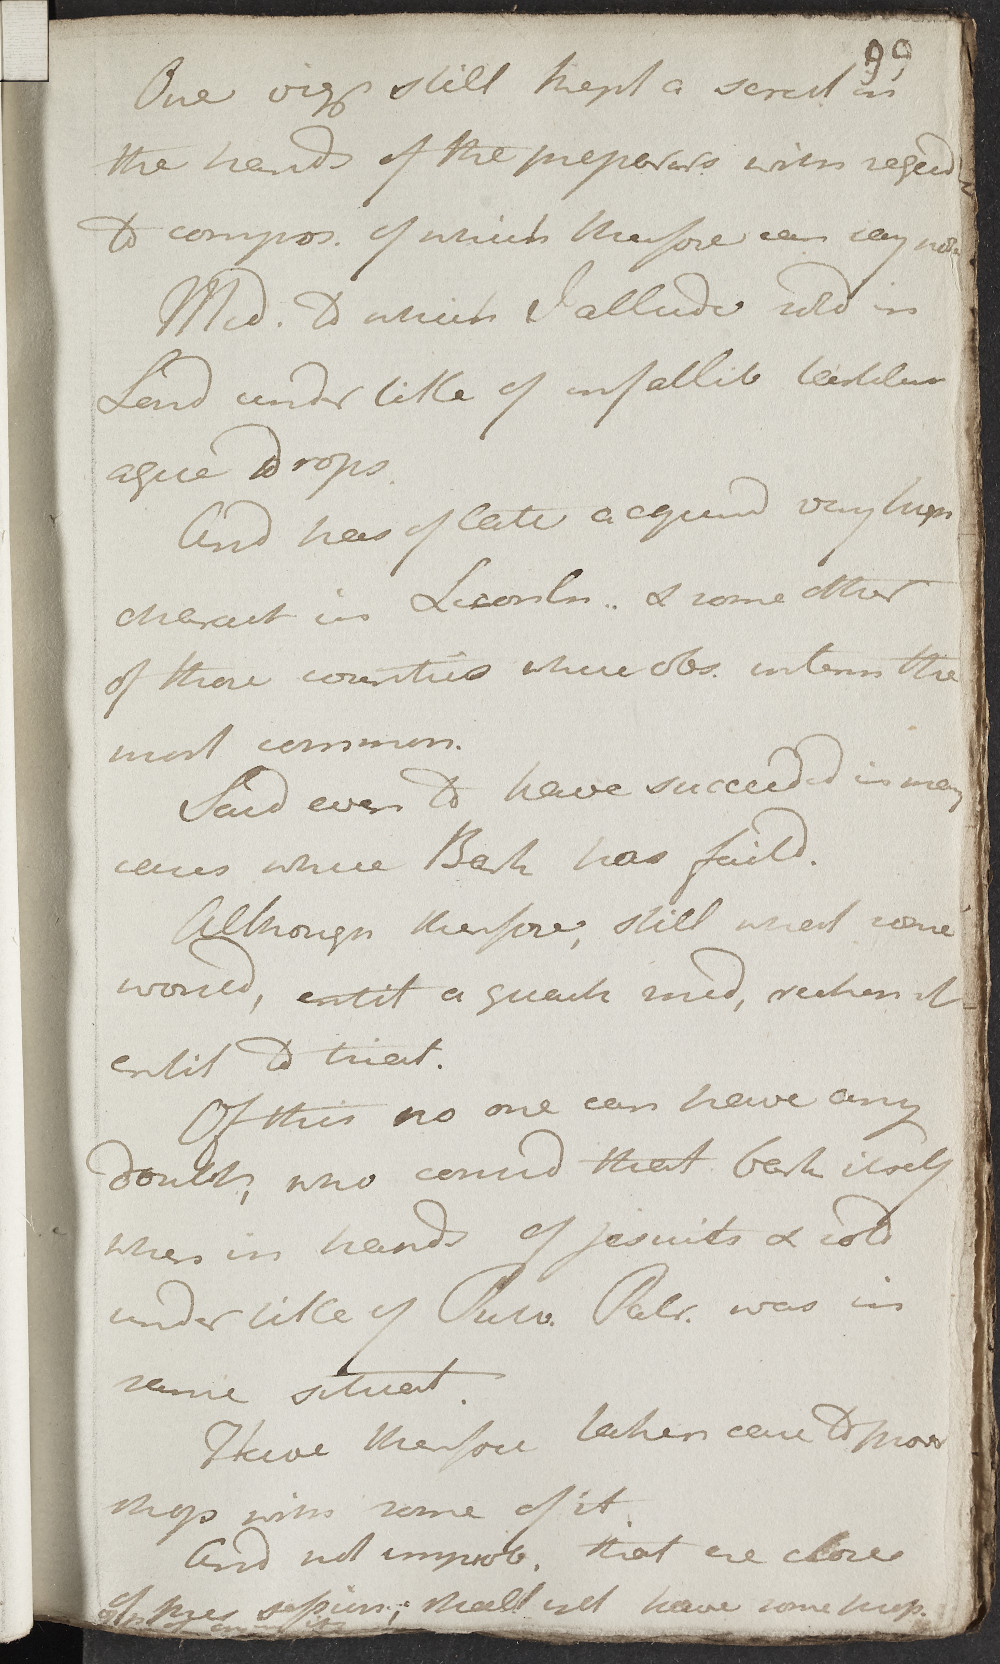 99
One viz. still kept a secret in
the hands of the preparers with regard
to compos. of which therefore can say not
Med. to which I allude sold in
Lond under title of infallib tasteless
ague Drops.
And has of late acquired very high
charact in Lincoln.. & some other
of those counties where obs. interm the
most common.
Said even to have succeeded in many
cases where Bark has faild.
Although therefore, still what some
would, entit a quack med, reckon it
entit to trial.
Of this no one can have any
doubt, who consid that bark itself
when in hands of jesuits & sold
under title of Pulv. Patr. was in
same situat.
Have therefore taken care to prov
shop with some of it.
And not improb. that ere close
of pres session; shall yet have some hop.